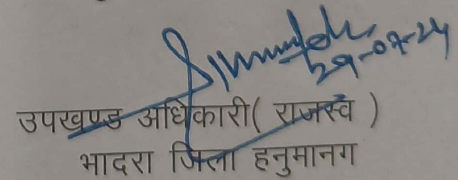 29-07-24
उपखण्ड अधिकारी( राजस्व )
भादरा जिला हनुमानग